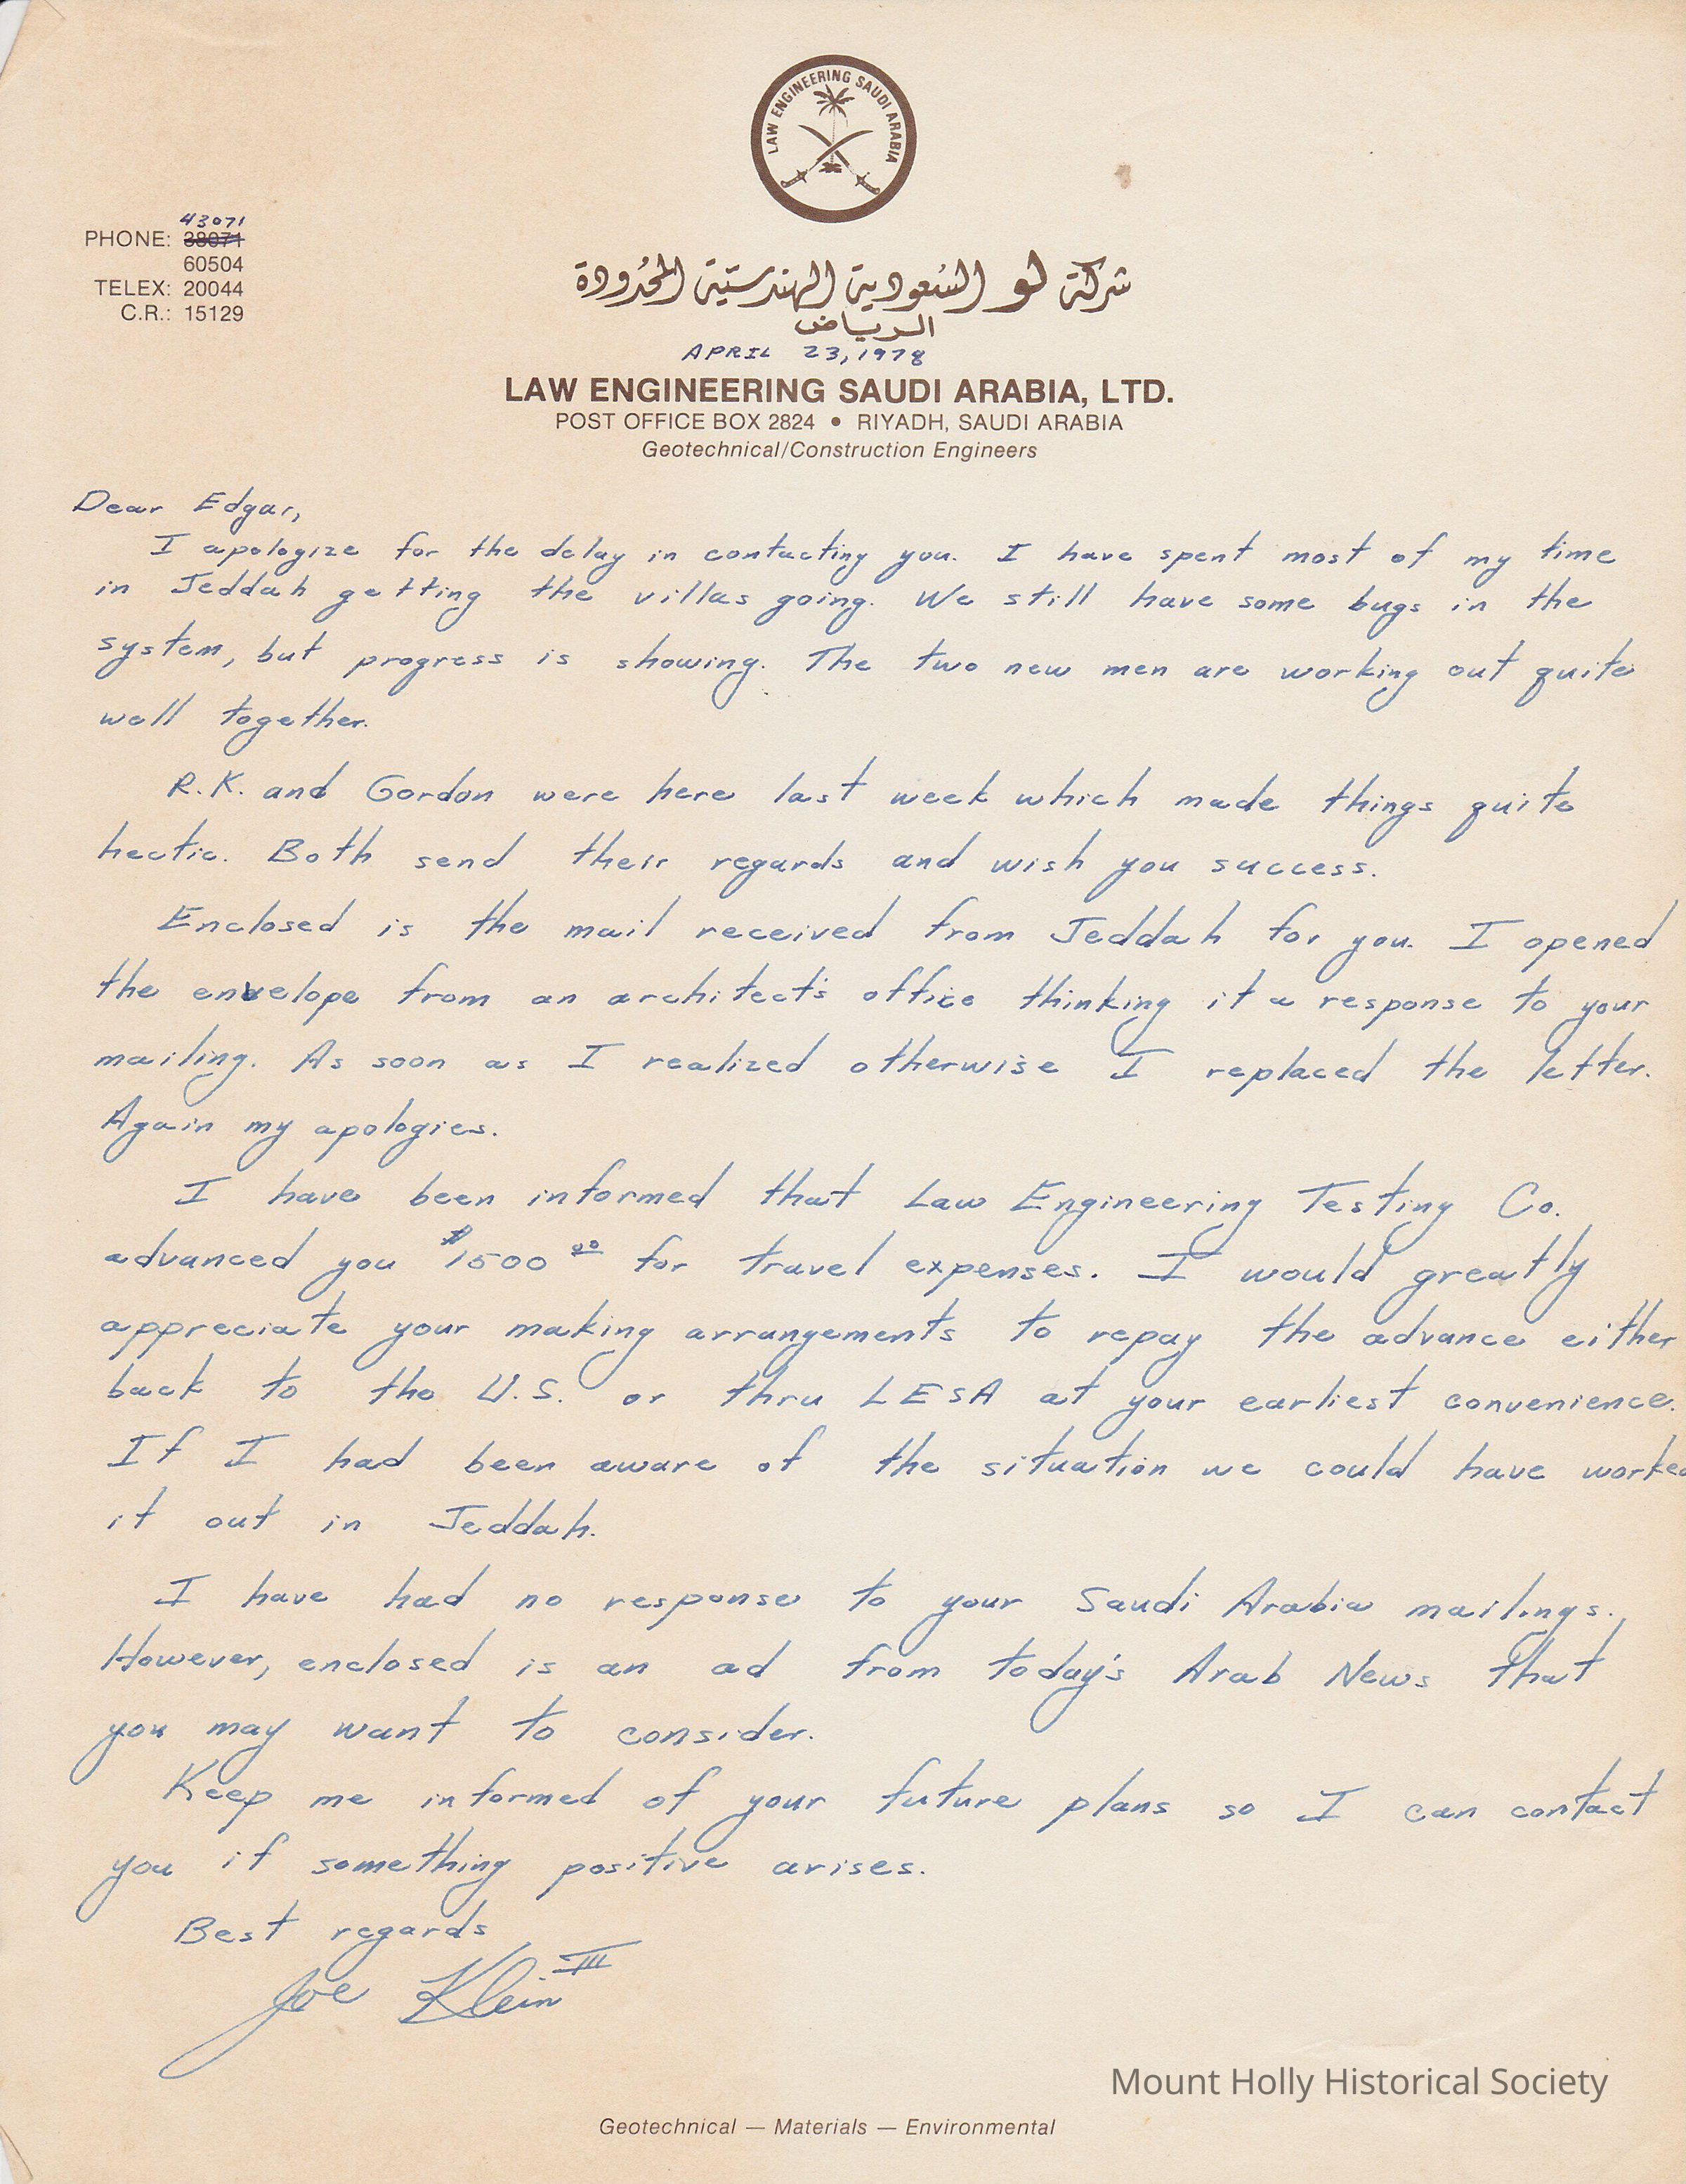 LAW ENGINEERING SAUDI ARABIA
43071
PHONE: 38071
60504
TELEX: 20044
C.R.: 15129
شركة لو السعودية الهندستية المحدودة
الرياض
APRIL 23, 1978
LAW ENGINEERING SAUDI ARABIA, LTD.
POST OFFICE BOX 2824 • RIYADH, SAUDI ARABIA
Geotechnical/Construction Engineers
Dear Edgar,
I apologize for the delay in contacting you. I have spent most of my time
in Jeddah getting the villas going. We still have some bugs in the
system, but progress is showing. The two new men are working out quite
well together.
R.K. and Gordon were here last week which made things quite
hectic. Both send their regards and wish you success.
Enclosed is the mail received from Jeddah for you. I opened
the envelope from an architect's office thinking it a response to your
mailing. As soon as I realized otherwise I replaced the letter.
Again my apologies.
I have been informed that Law Engineering Testing Co.
advanced you $1500 00 for travel expenses. I would greatly
appreciate your making arrangements to repay the advance either
back to the U.S. or thru LESA at your earliest convenience.
If I had been aware of the situation we could have worked
it out in Jeddah.
I have had no response to your Saudi Arabia mailings.
However, enclosed is an ad from today's Arab News that
you may want to consider.
Keep me informed of your future plans so I can contact
you if something positive arises.
Best regards
Joe Klein III
Mount Holly Historical Society
Geotechnical — Materials — Environmental